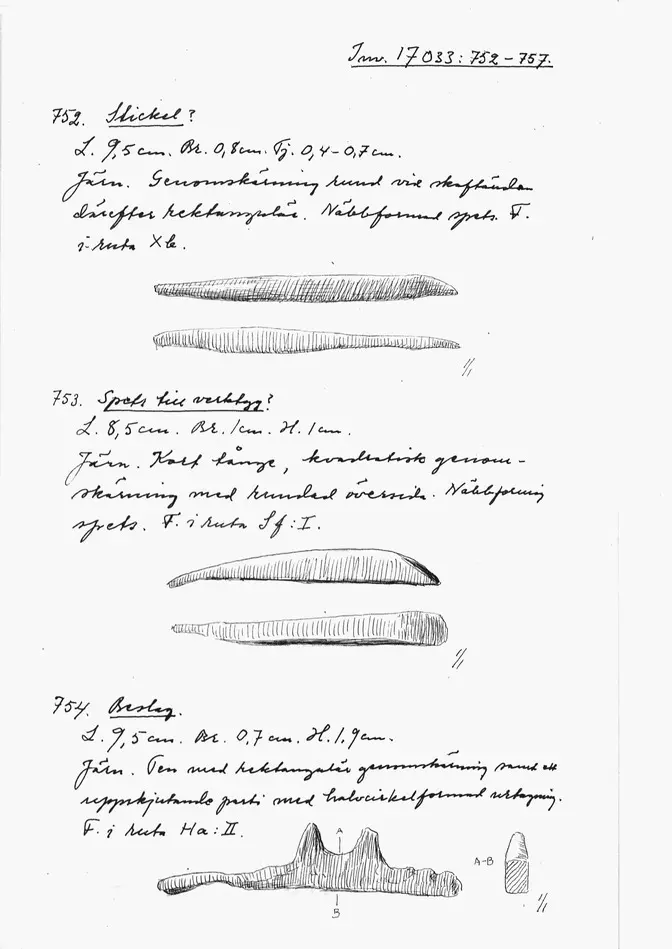 Inv. 17033:752-757.
752. Stickel?
L. 9,5cm. Br. 0,8cm. Tj. 0,4-0,7cm.
Järn. Genomskärning rund vid skaftändan
därefter rektangulär. Näbbformad spets. F.
i ruta Xb.
1/1
753. Spets till verktyg?
L. 8,5cm. Br. 1cm. H. 1cm.
Järn. Kort tånge, kvadratisk genom-
skärning med rundad översida. Näbbformig
spets. F. i ruta Sf:I.
1/1
754. Beslag.
L. 9,5cm. Br. 0,7cm. H. 1,9cm.
Järn. Ten med rektangulär genomskärning samt ett
uppskjutande parti med halvcirkelformad urtagning.
F. i ruta Ha:II.
A
A-B
B
1/1